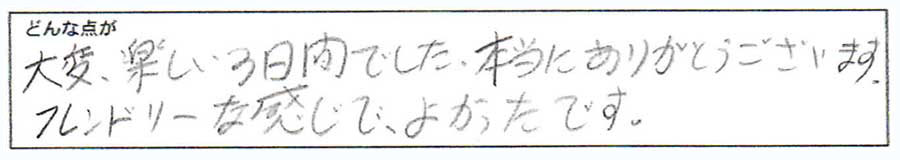 どんな点が
大変、楽しい3日間でした、本当にありがとうございます.
フレンドリーな感じで、よかったです。